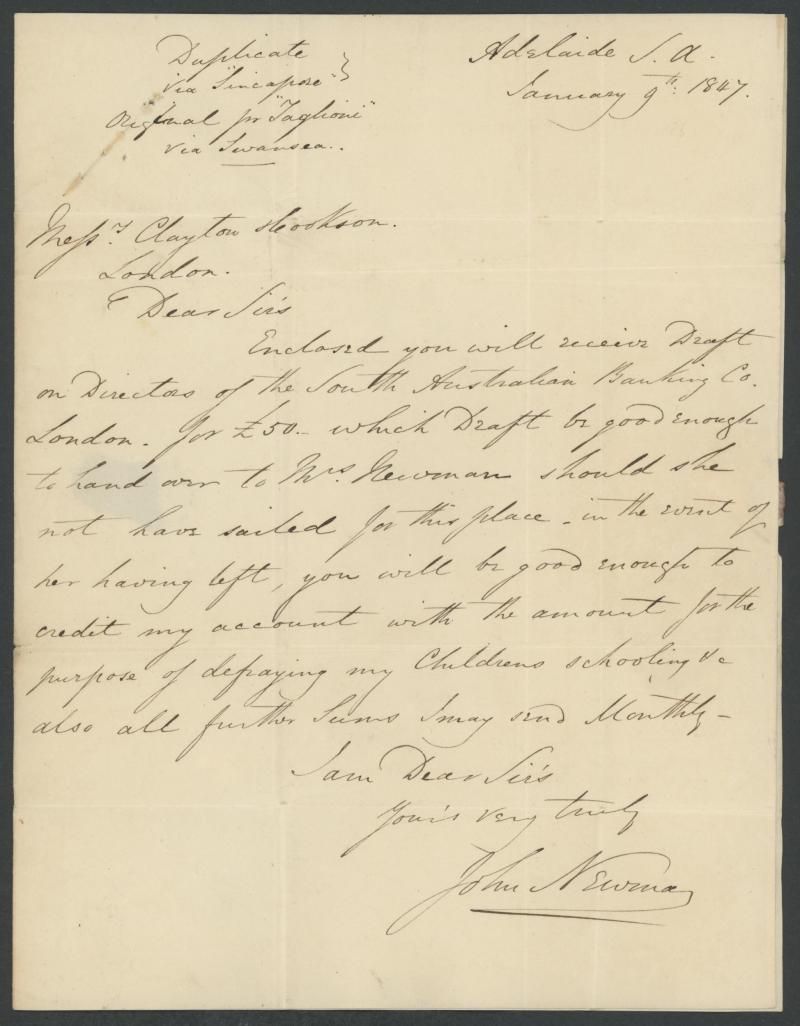 Duplicate
via "Sincapore" }
Adelaide S. A.
January 9th: 1847.
Original pr "Taglioni"
via Swansea..
Messrs. Clayton & Cookson.
London.
Dear Sir's
Enclosed you will receive Draft
on Directors of the South Australian Banking Co.
London. for £50.– which Draft be good enough
to hand over to Mrs. Newman should she
not have sailed for this place – in the event of
her having left, you will be good enough to
credit my account with the amount for the
purpose of defraying my Childrens schooling &c
also all further Sums I may send Monthly –
I am Dear Sir's
Your's very truly
John Newman